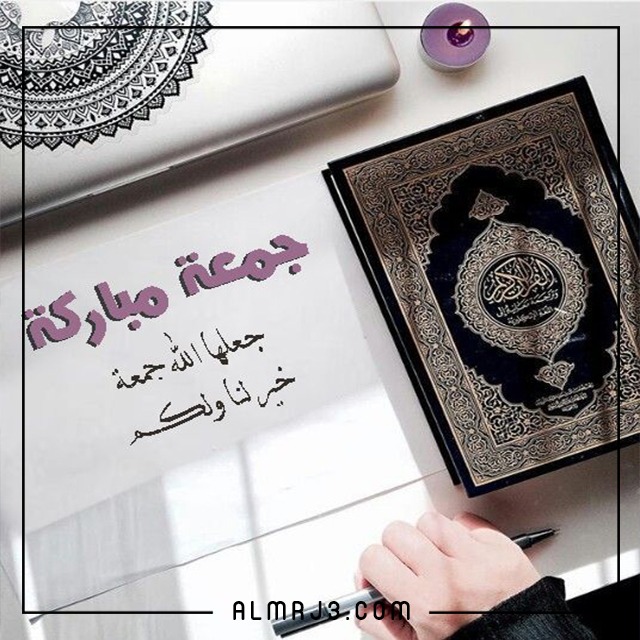 جمعة مباركة
جعلها الله جمعة
خير لنا ولكم
القرآن الكريم
ALMRJ3.COM